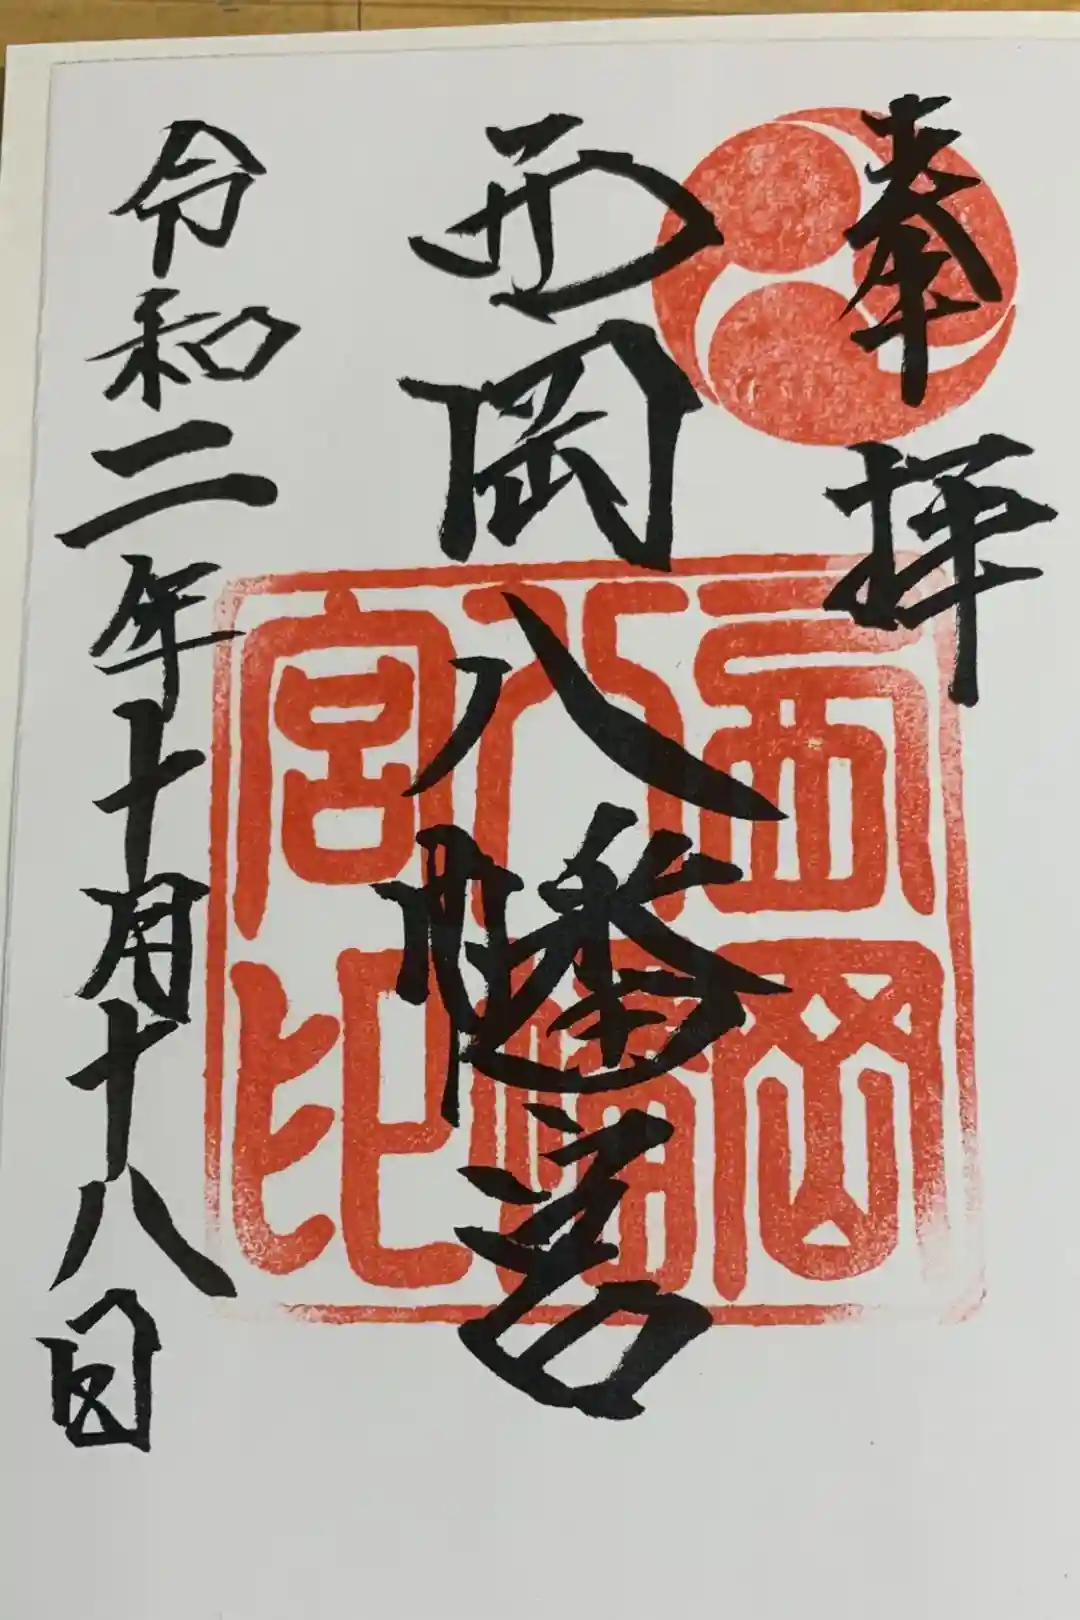 奉拝
西岡八幡宮
令和二年十月十八日
西岡
八幡
宮印